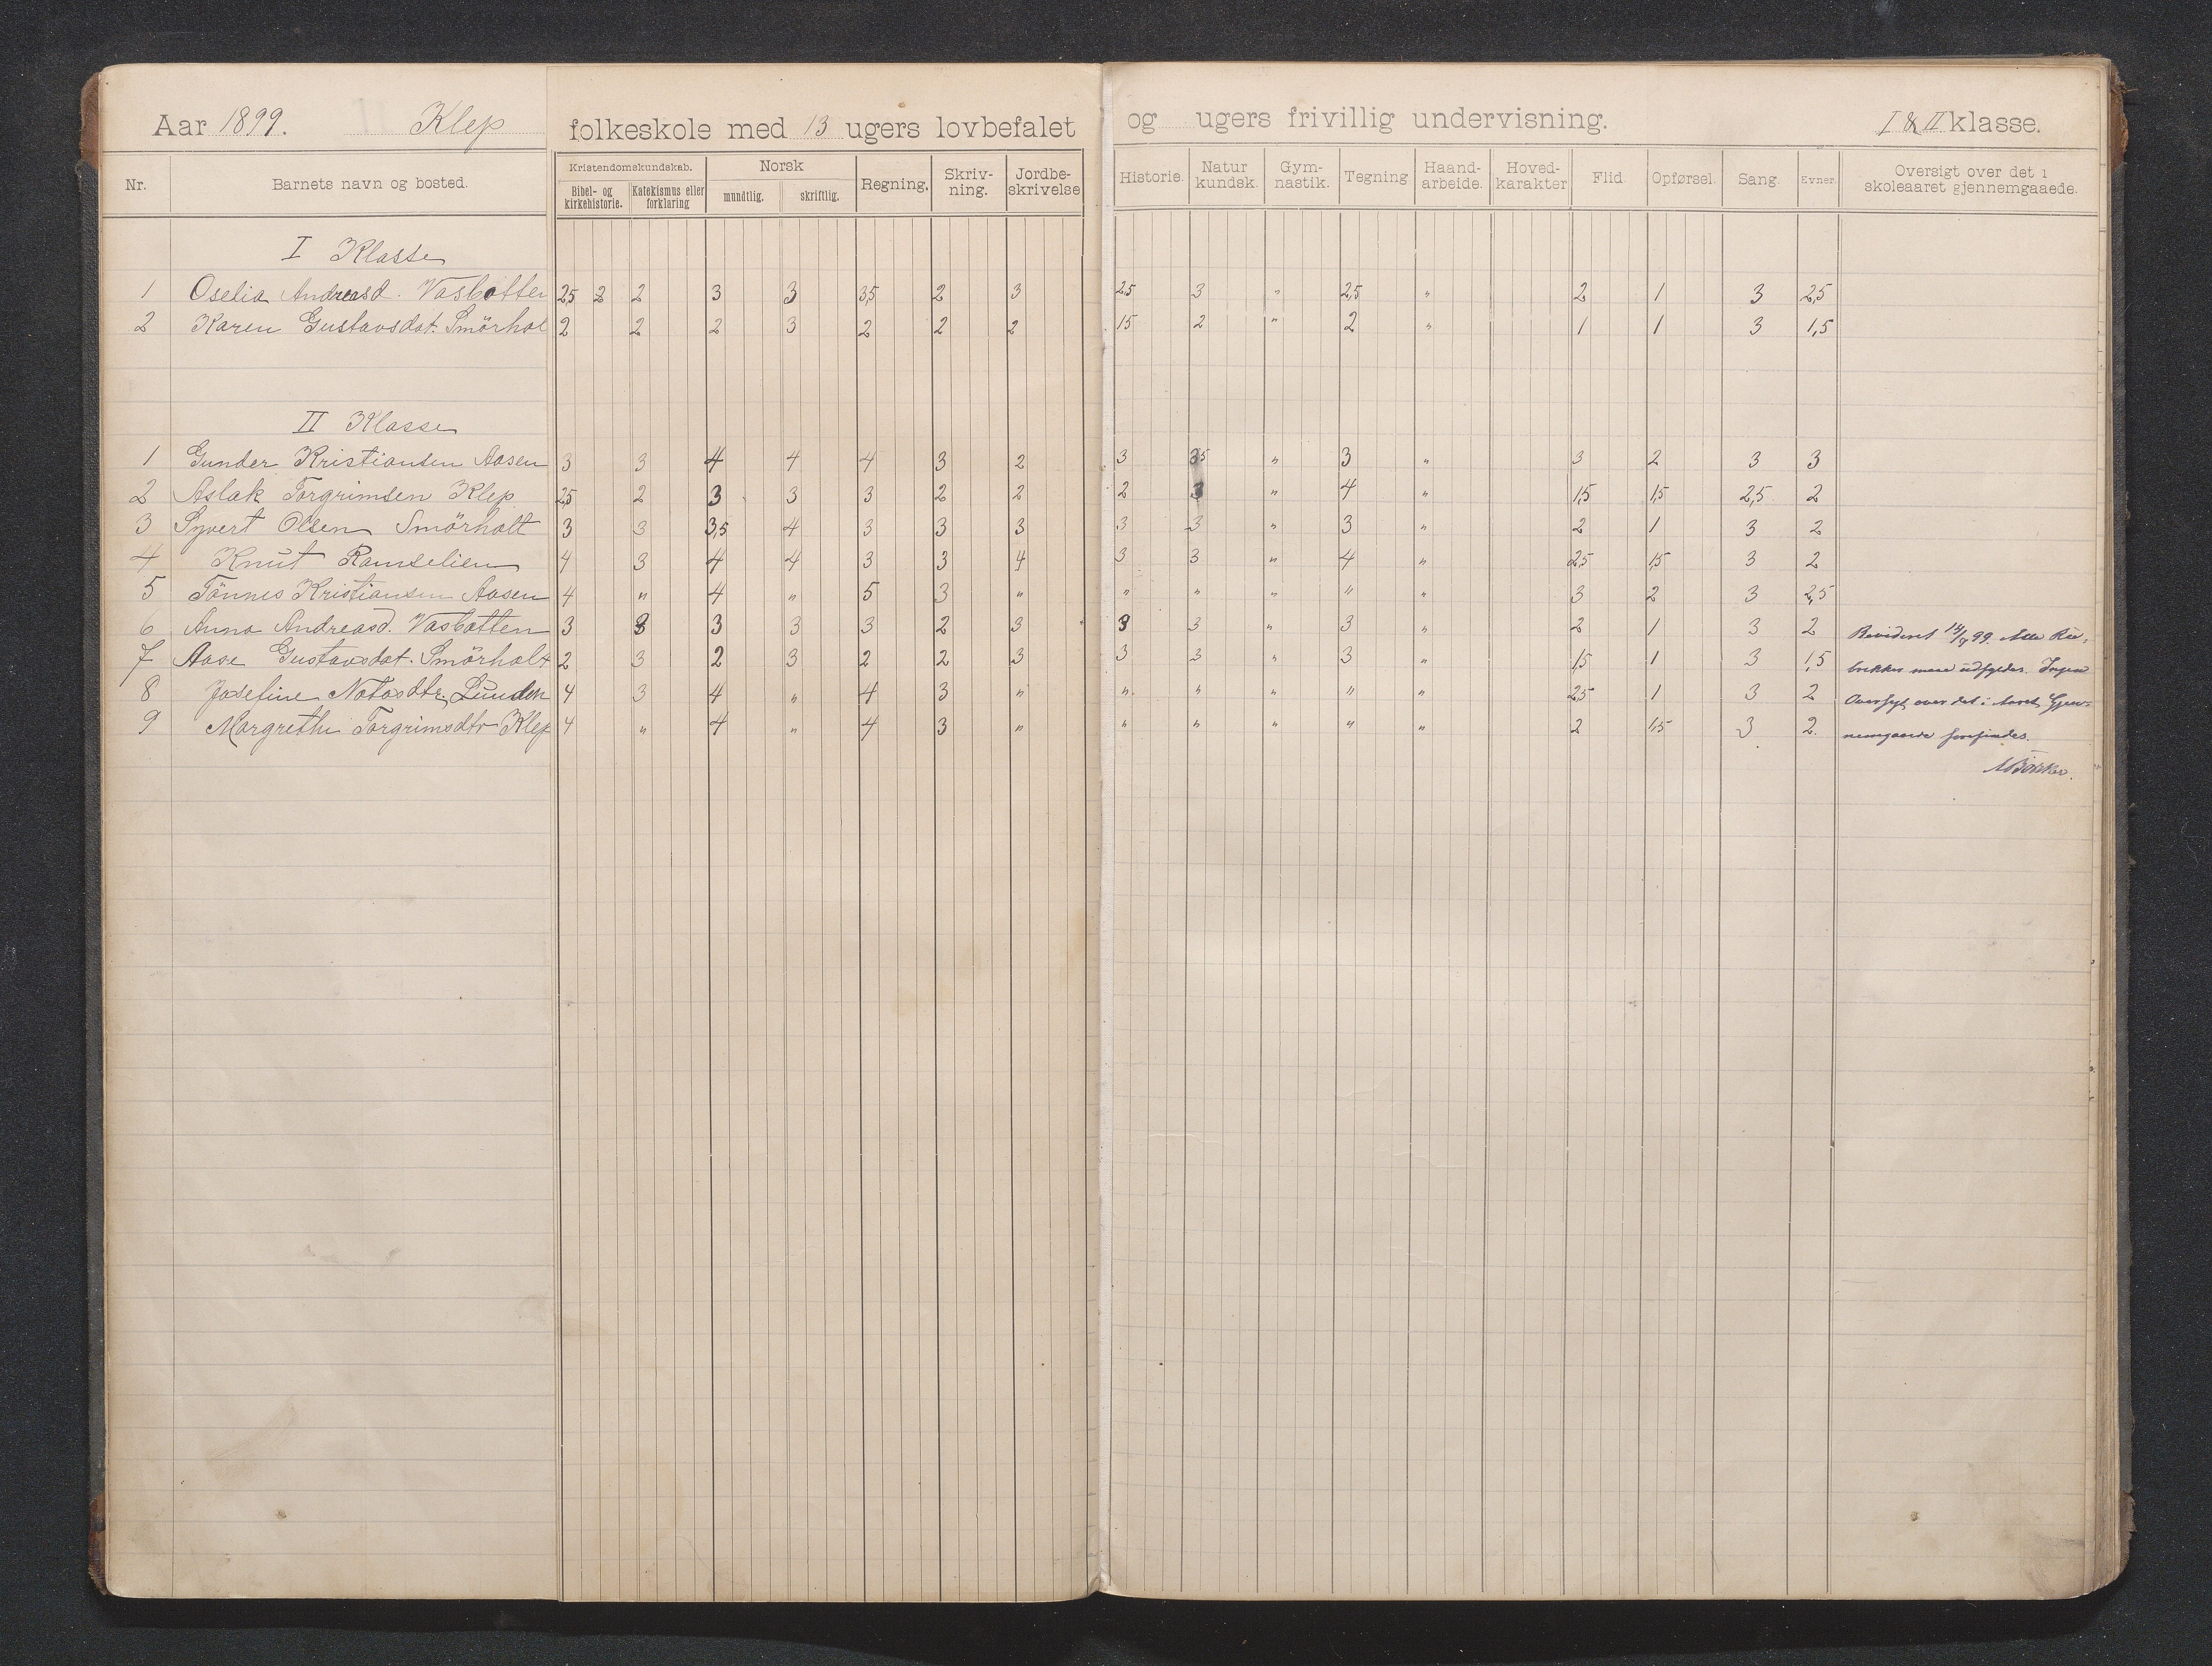 Aar 1899. Klep folkeskole med 13 ugers lovbefalet og ugers frivillig undervisning. I & II klasse.
Nr. Barnets navn og bosted. Kristendomskundskab. Bibel- og kirkehistorie. Katekismus eller forklaring Norsk mundtlig. skriftlig. Regning. Skriv-ning. Jordbe-skrivelse Historie. Natur kundsk. Gym-nastik. Tegning Haand-arbeide. Hoved-karakter Flid. Opførsel. Sang. Evner. Oversigt over det i skoleaaret gjennemgaaede.
I Klasse
1 Oselia Andreasd. Vasbotten 2,5 2 2 3 3 3,5 2 3 2,5 3 " 2,5 " 2 1 3 2,5
2 Karen Gustavsdat. Smörhol 2 2 2 3 2 2 2 1,5 2 " 2 " 1 1 3 1,5
II Klasse
1 Gunder Kristiansen Aasen 3 3 4 4 4 3 2 3 3,5 " 3 " 3 2 3 3
2 Aslak Torgrimsen Klep 2,5 2 3 3 3 2 2 2 3 " 4 " 1,5 1,5 2,5 2
3 Syvert Olsen Smörholt 3 3 3,5 4 3 3 3 3 3 " 3 " 2 1 3 2
4 Knut Ramselien 4 3 4 4 3 3 4 3 3 " 4 " 2,5 1,5 3 2
5 Tönnes Kristiansen Aasen 4 " 4 " 5 3 " " " " " " 3 2 3 2,5
6 Anna Andreasd. Vasbotten 3 3 3 3 3 2 3 3 3 " 3 " 2 1 3 2
7 Aase Gustavsdat. Smörholt 2 3 2 3 2 2 3 3 3 " 3 " 1,5 1 3 1,5
8 Josefine Notosdtr. Lunden 4 3 4 " 4 3 " " " " " " 2,5 1 3 2
9 Margrethe Torgrimsdtr Klep 4 " 4 " 4 3 " " " " " " 2 1,5 3 2.
Revideret 14/8 99. Alle Ru-
brikker maa udfyldes. Ingen
Oversigt over det i Aaret Gjen-
nemgaaede forefindes.